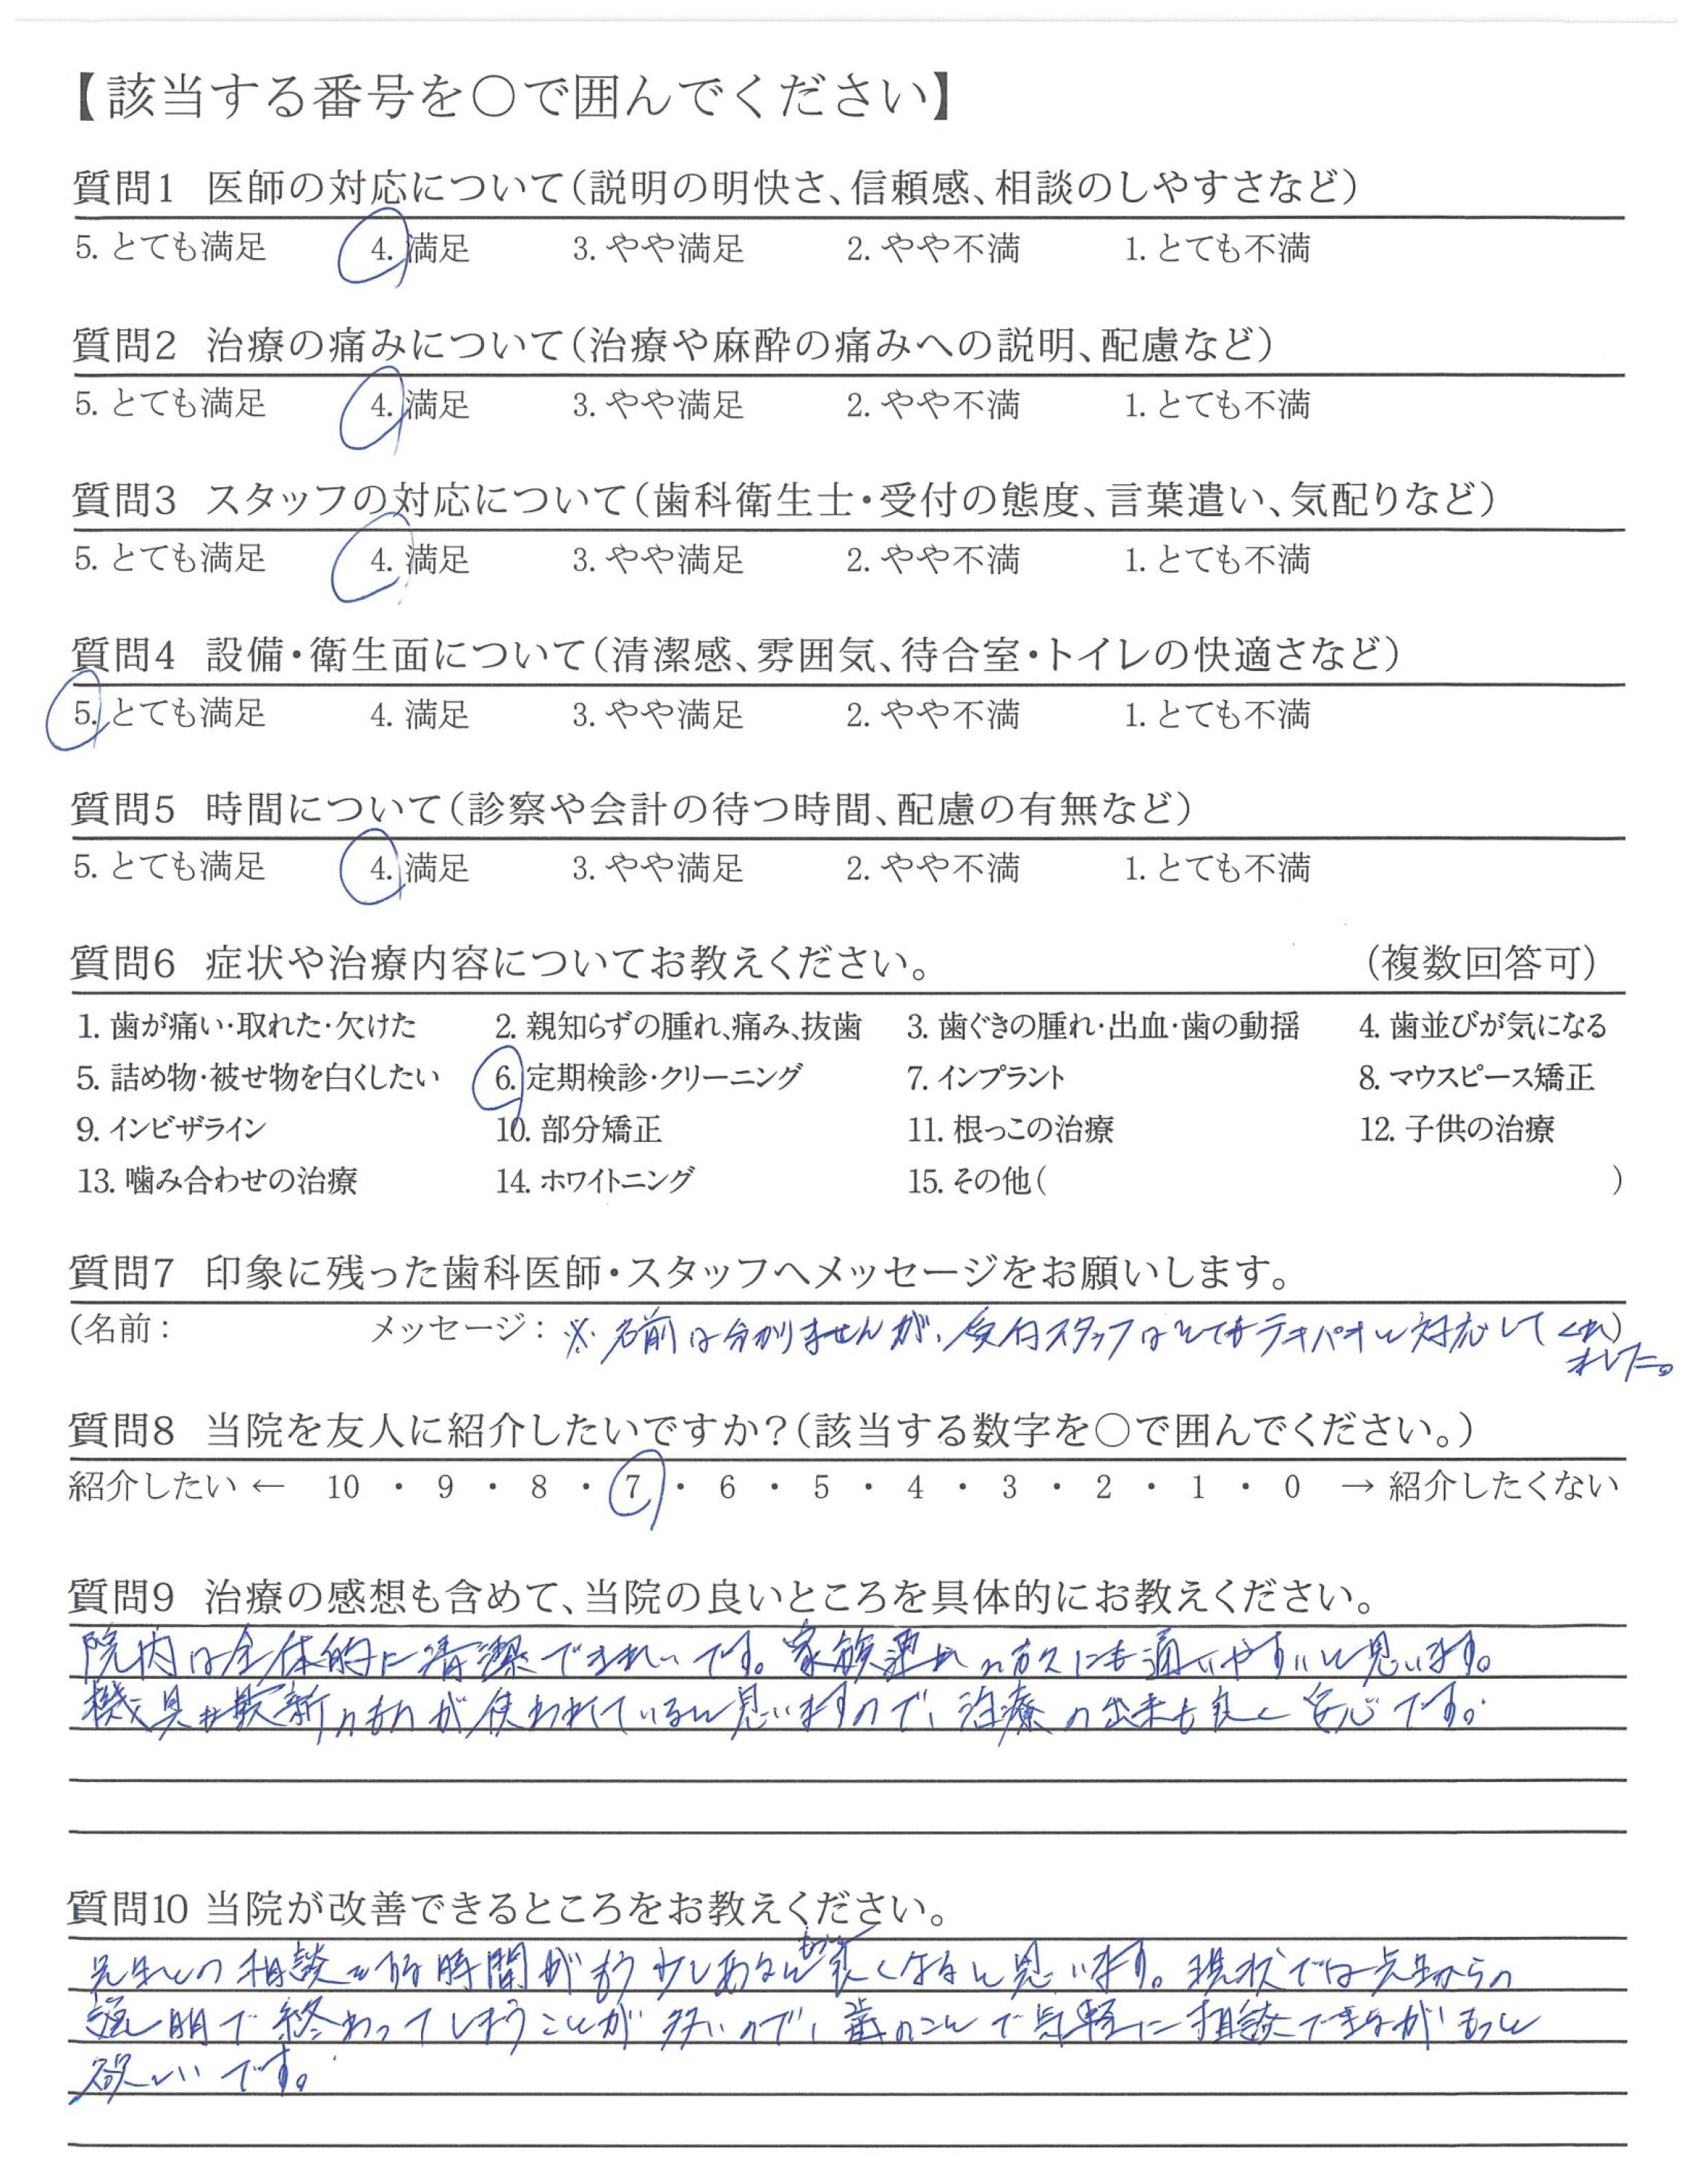 【該当する番号を○で囲んでください】
質問1 医師の対応について(説明の明快さ、信頼感、相談のしやすさなど)
5. とても満足 4. 満足 3. やや満足 2. やや不満 1. とても不満
質問2 治療の痛みについて(治療や麻酔の痛みへの説明、配慮など)
5. とても満足 4. 満足 3. やや満足 2. やや不満 1. とても不満
質問3 スタッフの対応について(歯科衛生士・受付の態度、言葉遣い、気配りなど)
5. とても満足 4. 満足 3. やや満足 2. やや不満 1. とても不満
質問4 設備・衛生面について(清潔感、雰囲気、待合室・トイレの快適さなど)
5. とても満足 4. 満足 3. やや満足 2. やや不満 1. とても不満
質問5 時間について(診察や会計の待つ時間、配慮の有無など)
5. とても満足 4. 満足 3. やや満足 2. やや不満 1. とても不満
質問6 症状や治療内容についてお教えください。 (複数回答可)
1. 歯が痛い・取れた・欠けた 2. 親知らずの腫れ、痛み、抜歯 3. 歯ぐきの腫れ・出血・歯の動揺 4. 歯並びが気になる
5. 詰め物・被せ物を白くしたい 6. 定期検診・クリーニング 7. インプラント 8. マウスピース矯正
9. インビザライン 10. 部分矯正 11. 根っこの治療 12. 子供の治療
13. 噛み合わせの治療 14. ホワイトニング 15. その他( )
質問7 印象に残った歯科医師・スタッフへメッセージをお願いします。
(名前: メッセージ: ※名前は分かりませんが、受付スタッフはとてもテキパキと対応してくれ)
ました。
質問8 当院を友人に紹介したいですか?(該当する数字を○で囲んでください。)
紹介したい ← 10 ・ 9 ・ 8 ・ 7 ・ 6 ・ 5 ・ 4 ・ 3 ・ 2 ・ 1 ・ 0 → 紹介したくない
質問9 治療の感想も含めて、当院の良いところを具体的にお教えください。
院内は全体的に清潔できれいです。家族連れの方々にも通いやすいと思います。
機具も最新のものが使われていると思いますので、治療の出来も良く安心です。
質問10 当院が改善できるところをお教えください。
先生との相談を行う時間がもう少しあるともっと良くなると思います。現状では先生からの
説明で終わってしまうことが多いので、歯のことで気軽に相談できるがもっと
欲しいです。